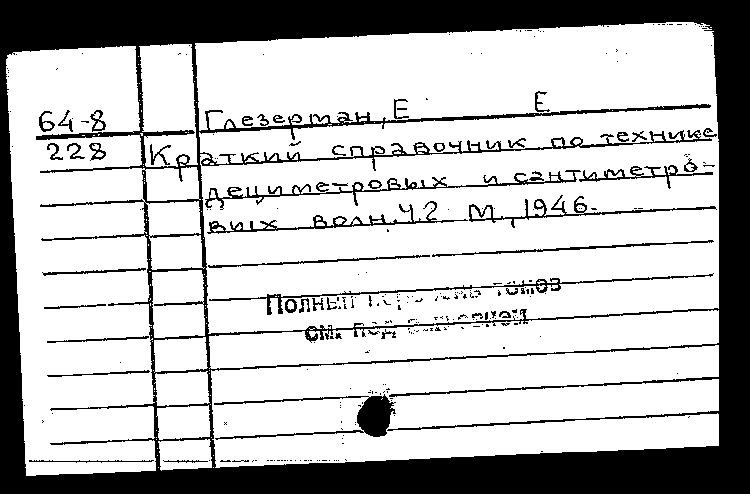 64-8 Глезерман, Е Е
228 Краткий справочник по технике
дециметровых и сантиметро-
вых волн. Ч.2 М., 1946.
Полный перечень томов
см. под